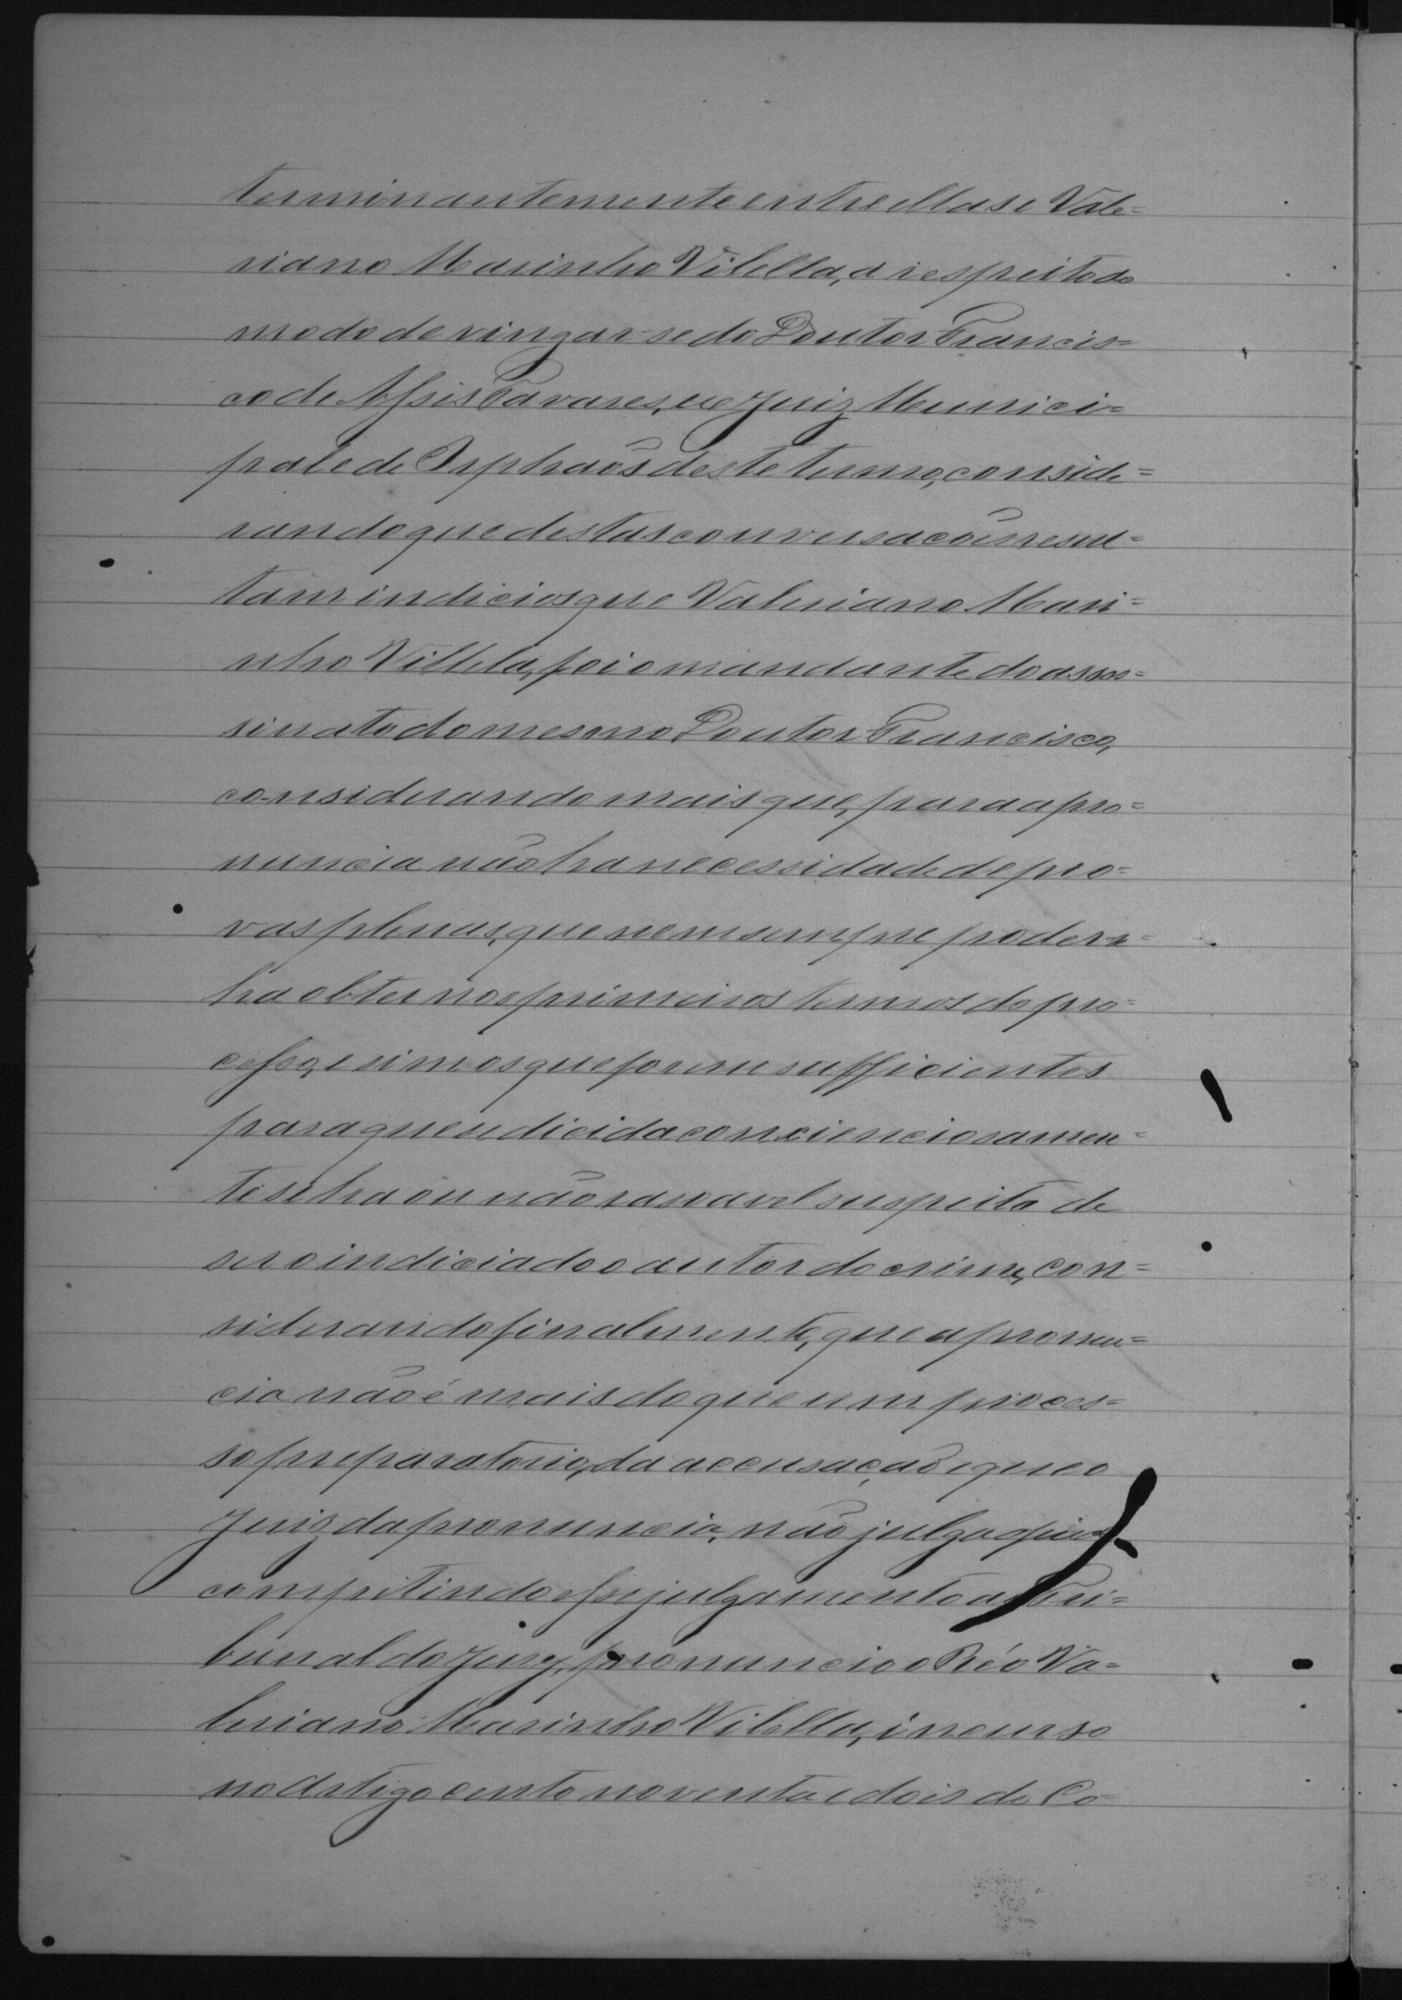 terminantemente entre ella se Vale=
riano Marinho Vilella, a respeito do
modo de vingar-se do Doutor Francis=
co de Assis Tavares, ex Juiz Munici=
pal e de Orphaõs deste termo, conside=
rando que destas conversacões resul=
tam indicios que Valeriano Mari=
nho Villela, foi o mandante do assas=
sinato do mesmo Doutor Francisco,
considerando mais que, para a pro=
nuncia não ha necessidade de pro=
vas plenas, que nem sempre poder-se=
ha obter nos primeiros termos do pro=
cesso, e sim os que forem sufficientes
para que se dicida conscienciosamen=
te se ha ou não rasoavel suspeita de
ser o indiciado o autor do crime, con=
siderando finalmente, que a pronun=
cia não é mais do que um proces=
so preparatorio, da accusação e que o
Juiz da pronuncia, não julga
competindo esse julgamento ao Tri=
bunal do Jury, pronuncio o Réo Va=
leriano Marinho Vilella, incurso
no Artigo cento noventa e dois do Co=